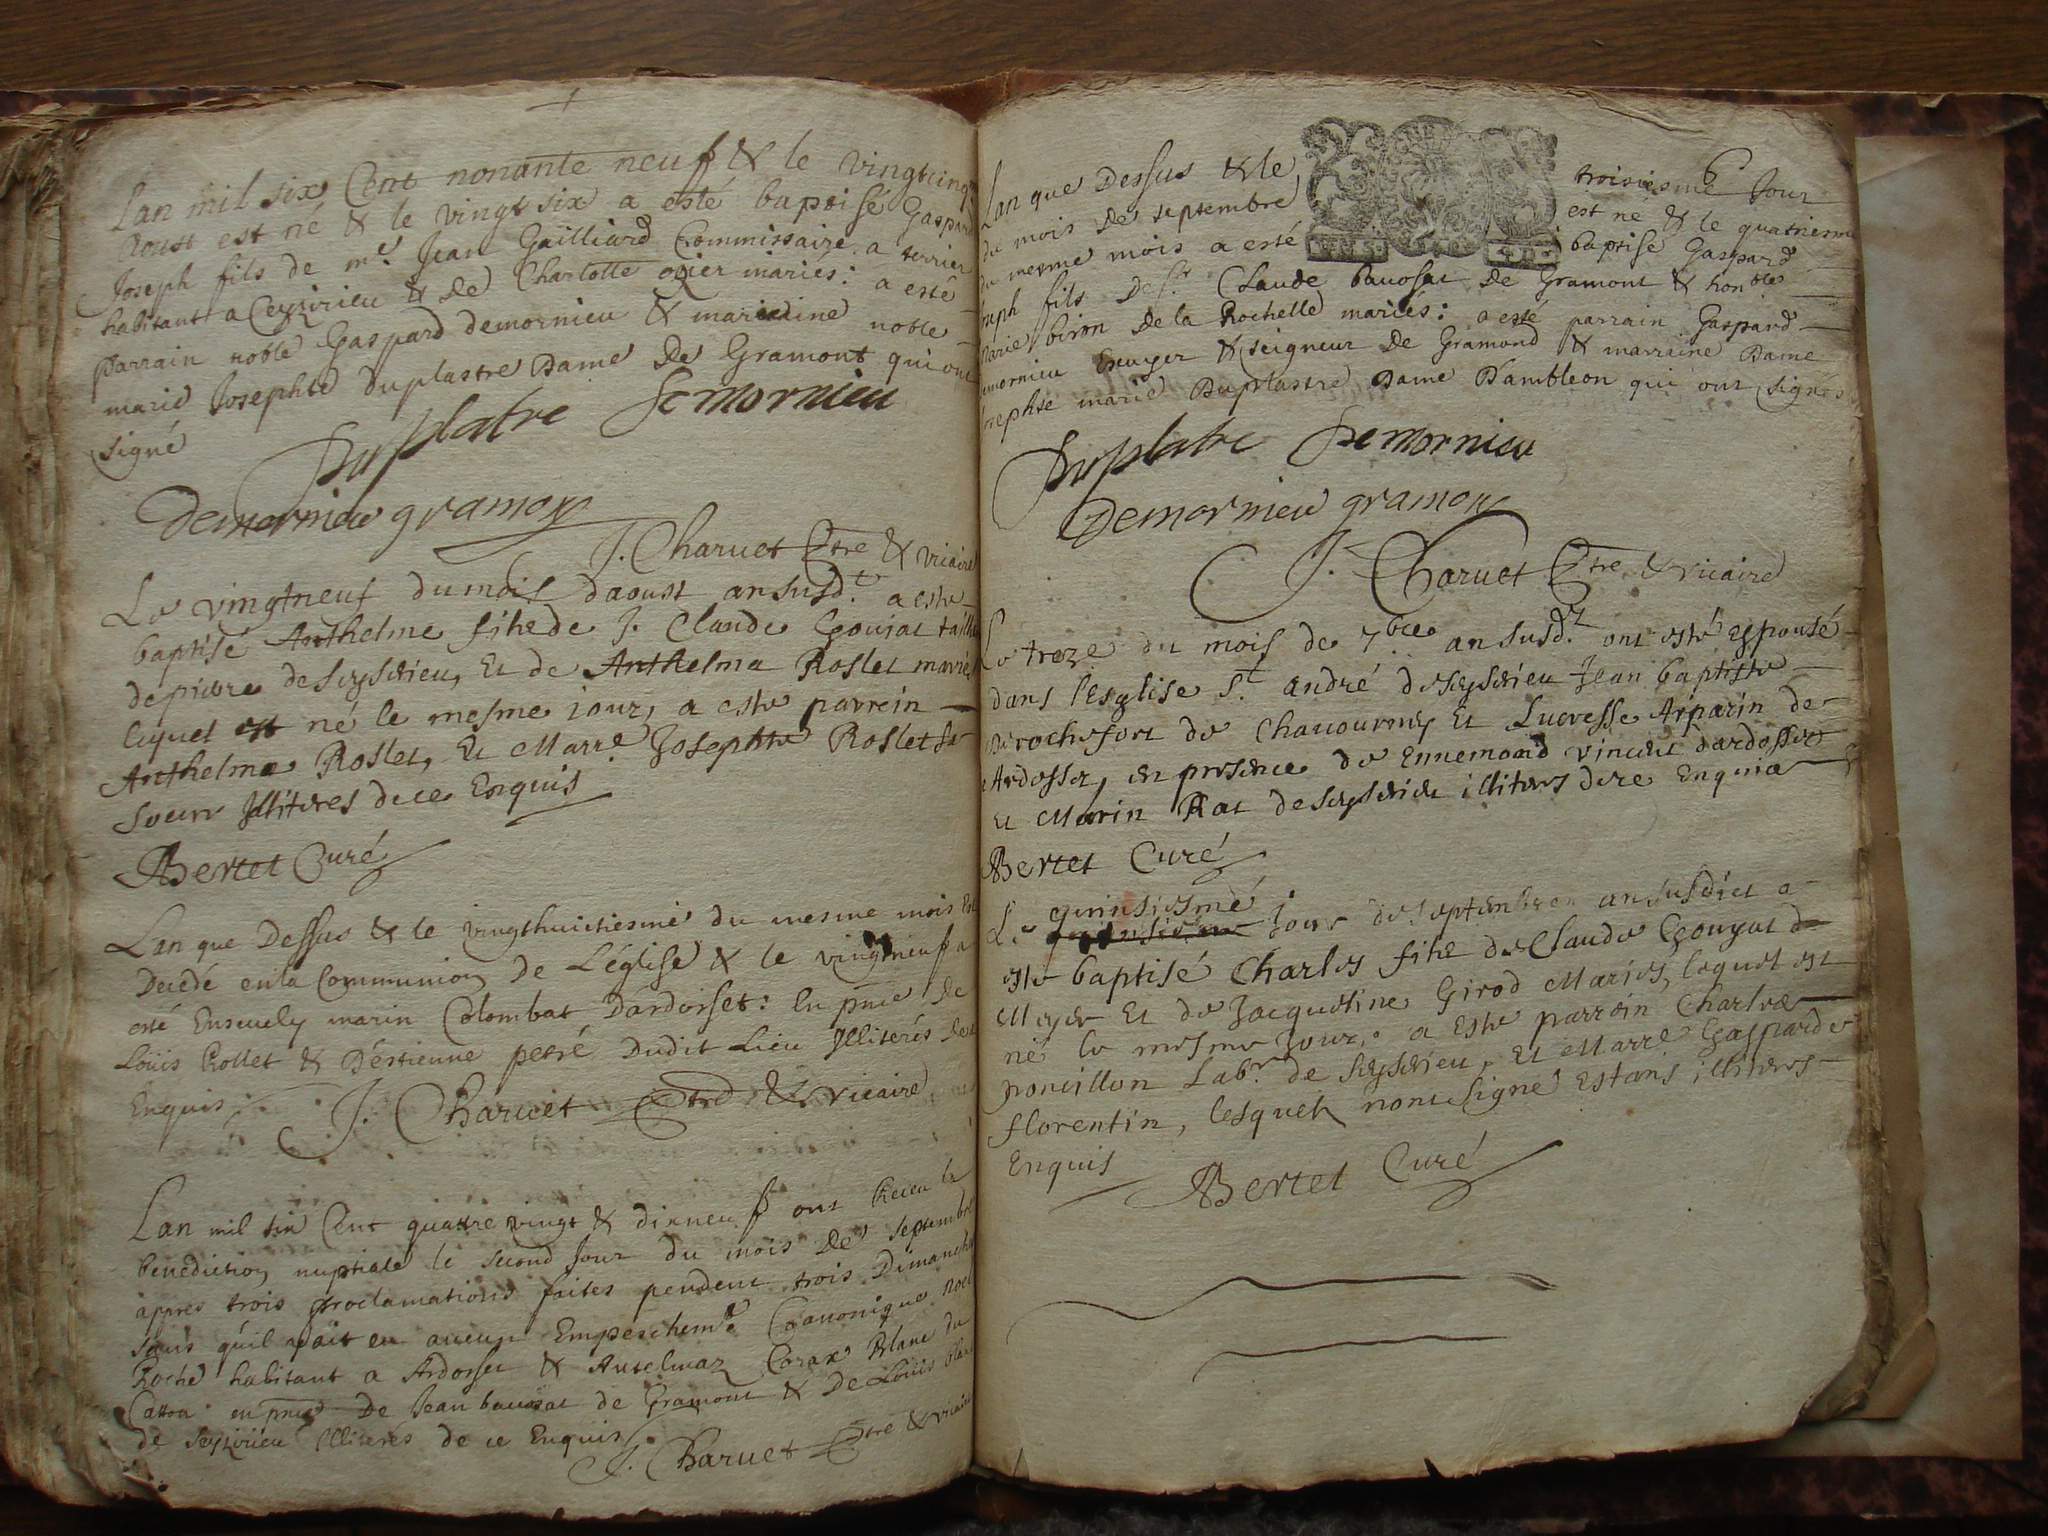 Lan mil six Cent nonante neuf & le vingtcinq
Aoust est né & le vingt six a esté baptisé Gaspard
Joseph fils de me. Jean Gailliard Commissaire a terrier
habitant a Ceyzirieu & De Charlotte ogier mariés: a esté
parrain noble Gaspard demornieu & maraine noble
marie Josephte duplastre Dame De Gramont qui ont
signé
Duplatre Demornieu
Demornieu gramon
J. Charuet Ptre & vicaire
Le vingtneuf dumois daoust ansusd.t a este
baptisé Anthelme filz de J. Claude Goujat
depierre deseyserieu, Et de Anthelma Roslet mariés
lequel est né le mesme iour, a este parrein
Anthelme Roslet, Et Marre Josephte Roslet sa
soeur Illiteres dece Enquis
Bertet Curé
Lan que Dessus & le vingthuictiesme du mesme mois est
Decedé en la Communion de L'église & le vingtneuf a
esté Enseuely marin Colombat Dardosset: En pnce De
Loüis Rollet & D'estienne petré Dudit Lieu Illiterés dece
Enquis
J. Charuet Ptre & vicaire
Lan mil six Cent quattre vingt & dixneuf ont Receu la
benediction nuptiale le second Jour du mois De septembre
appres trois proclamations faites pendent trois Dimanches
sans qu'il y ait eu aucun Empeschem.t Canonique noel
Roche habitant a Ardosset & Antelmaz Corax Blanc du
en pnce De Jean bauosat de Gramont & De Loüis blanc
de seyzirieu Illiterés de ce Enquis
J. Charuet Ptre & vicaire
Lan que Dessus & le troisiesme Jour
du mois de septembre est né & le quatriesme
du mesme mois a esté baptisé Gaspard
Joseph fils De sr. Claude bauosat De Gramont & honble
marie biron De la Rochelle mariés: a esté parrain Gaspard
demornieu Escuyer & seigneur De Gramond & marraine Dame
Josephte marie Duplastre Dame D'ambleon qui ont signés
Duplatre Demornieu
Demornieu gramon
J. Charuet Ptre & vicaire
Le treze du mois de 7bre ansusd.t ont esté espousé
dans l'Esglise S.t André deseyserieu Jean baptiste
Derochefort de Chauourney Et Lucresse Arparin de
Ardosset, en presence de Ennemond vincent dardosset
Et Marin Rat deseyserieu illiteres dece Enquis
Bertet Curé
quinsiesme
Le Jour de septembre ansusdict a
este baptisé Charles filz de Claude Goujat d
Et de Jacquetine Girod Mariés, lequel est
né le mesme Jour, a Este parrein Charles
ponsillon Labr. de seyserieu, Et Marre Gasparde
florentin, lesquelz nont signé Estans illiteres
Enquis
Bertet Curé